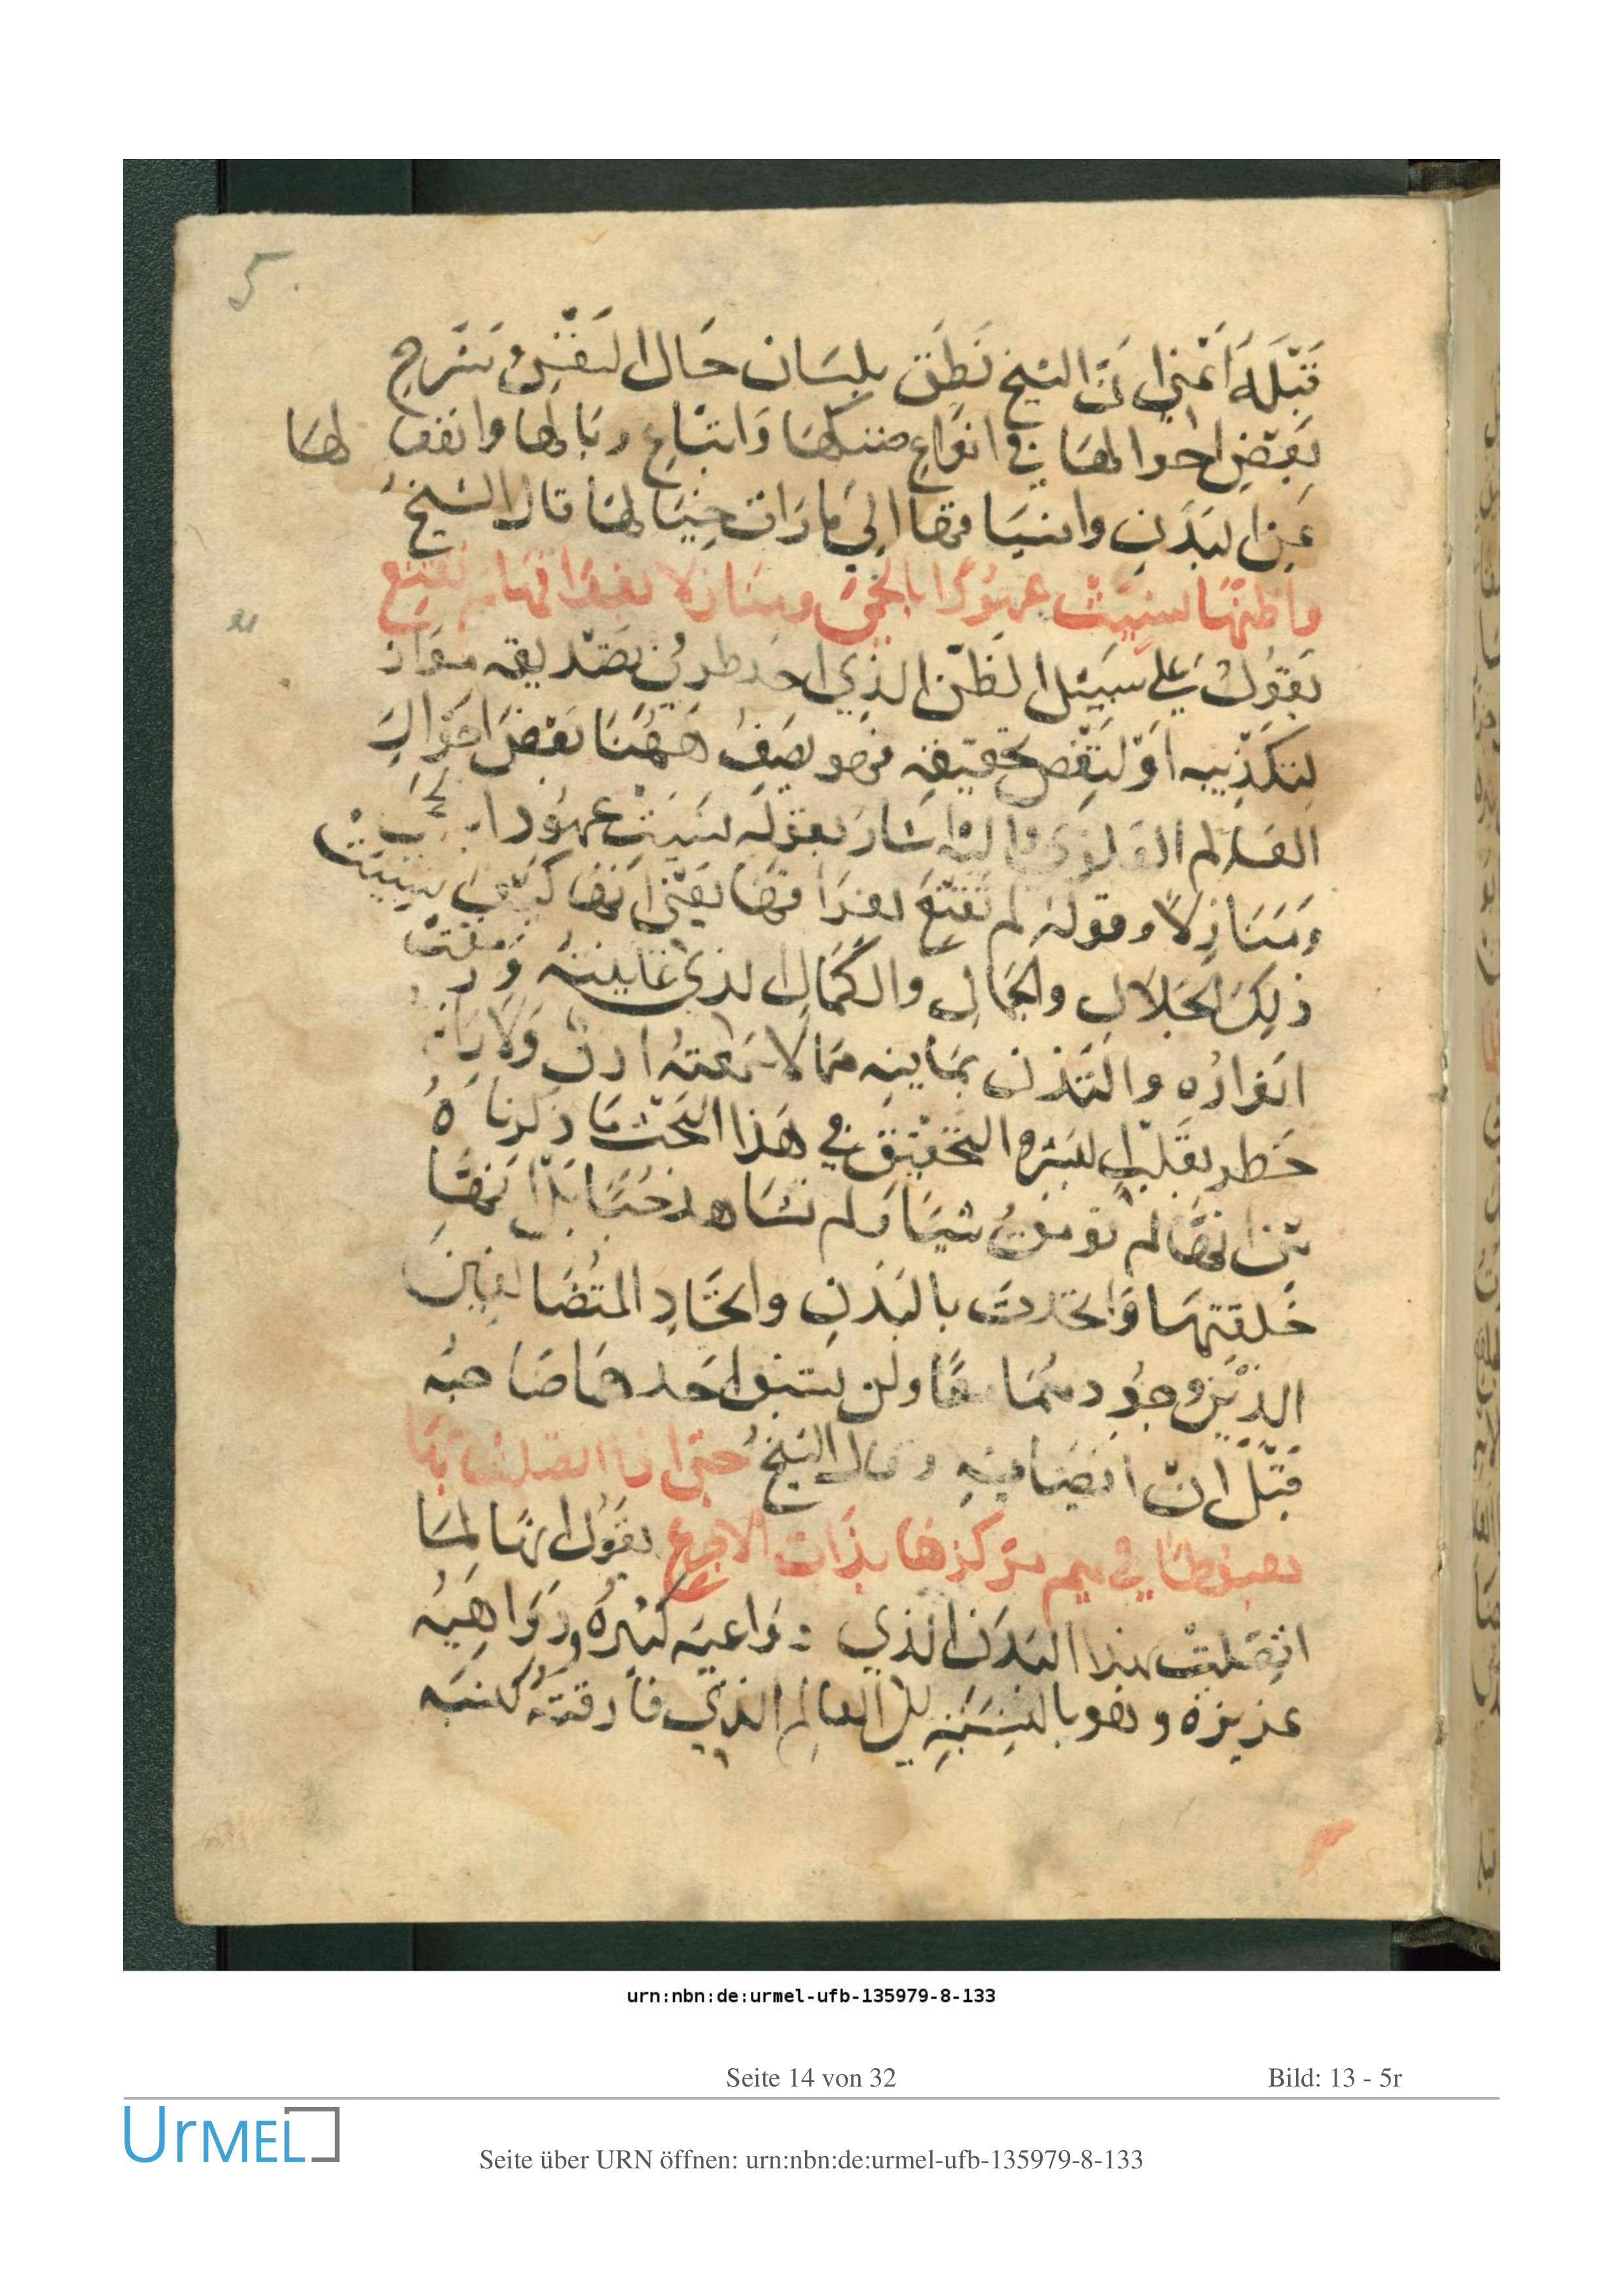 5.
قبله اعني ان الشيخ نطق بلسان حال النفس وشرح
بعض احوالها في انواع واتباع وانفصا لها
عن البدن وانسياقها الي ما رات حينا لها قال الشيخ
واظنها نسيت عهودا بالحمى ومنازلا بفراقها لم تقنع
يقول علي سبيل الظن الذي احد طرفي تصديقه
لتكذيبه او لنقص تحقيقه فهو يصف ههنا بعض احوال
العالم العلوي واليه اشار بقوله نسيت عهودا
ومنازلا وقوله لم تقنع بفراقها يعني انها كيف نسيت
ذلك الجلال والجمال والكمال الذي عاينته
انواره والتذت بما فيه مما لا سمعته اذن ولا
خطر بقلب بشر التحقيق في هذا البحث ما ذكرناه
من انها لم شيا ولم تشاهد حيا بل انها
خلقتها واتحدت بالبدن واتحاد المتضايفين
الذين وجودهما معا ولن يسبق احدهما صاحبه
قبل ان قال الشيخ حتى اذا اتصلت بها
هبوطها في ميم مركزها بذات الاجرع يقول انها لما
اتصلت بهذا البدن الذي دواعيه كثيره ودواهيه
عزيزة وهو بالنسبة الي العالم الذي فارقته كنسبه
urn:nbn:de:urmel-ufb-135979-8-133
Seite 14 von 32 Bild: 13 - 5r
UrMEL
Seite über URN öffnen: urn:nbn:de:urmel-ufb-135979-8-133